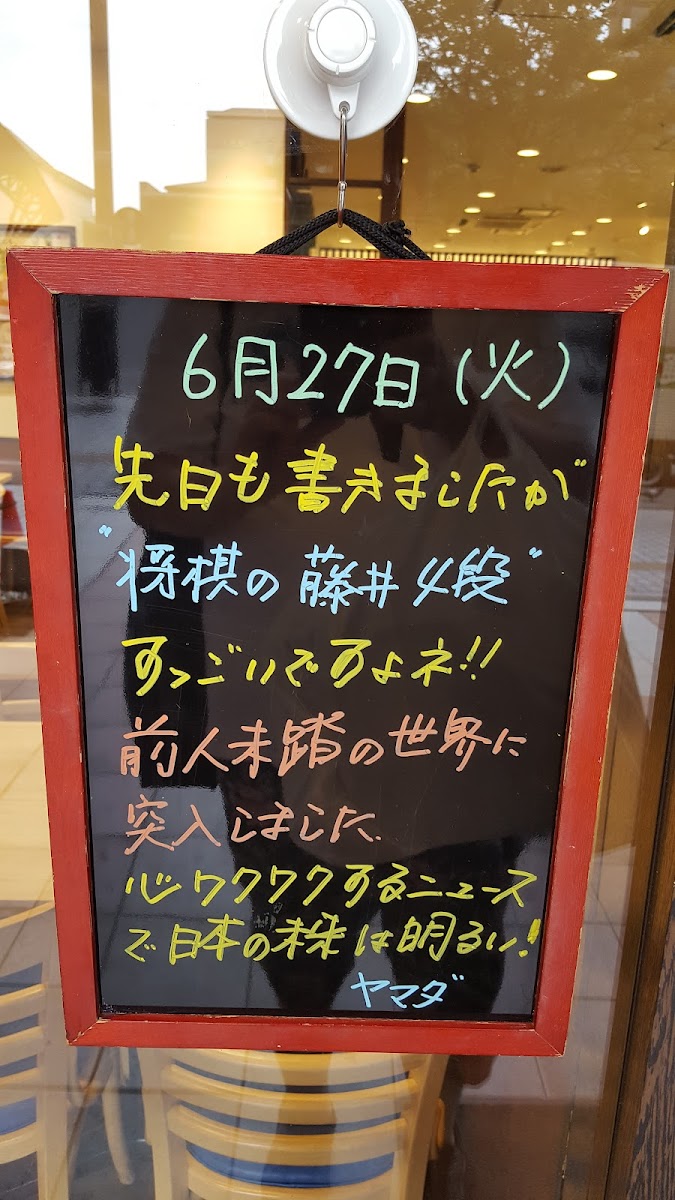 6月27日(火)
先日も書きましたが
"将棋の藤井4段"
すっごいですよネ!!
前人未踏の世界に
突入しました.
心ワクワクするニュース
で日本の株は明るい!
ヤマダ